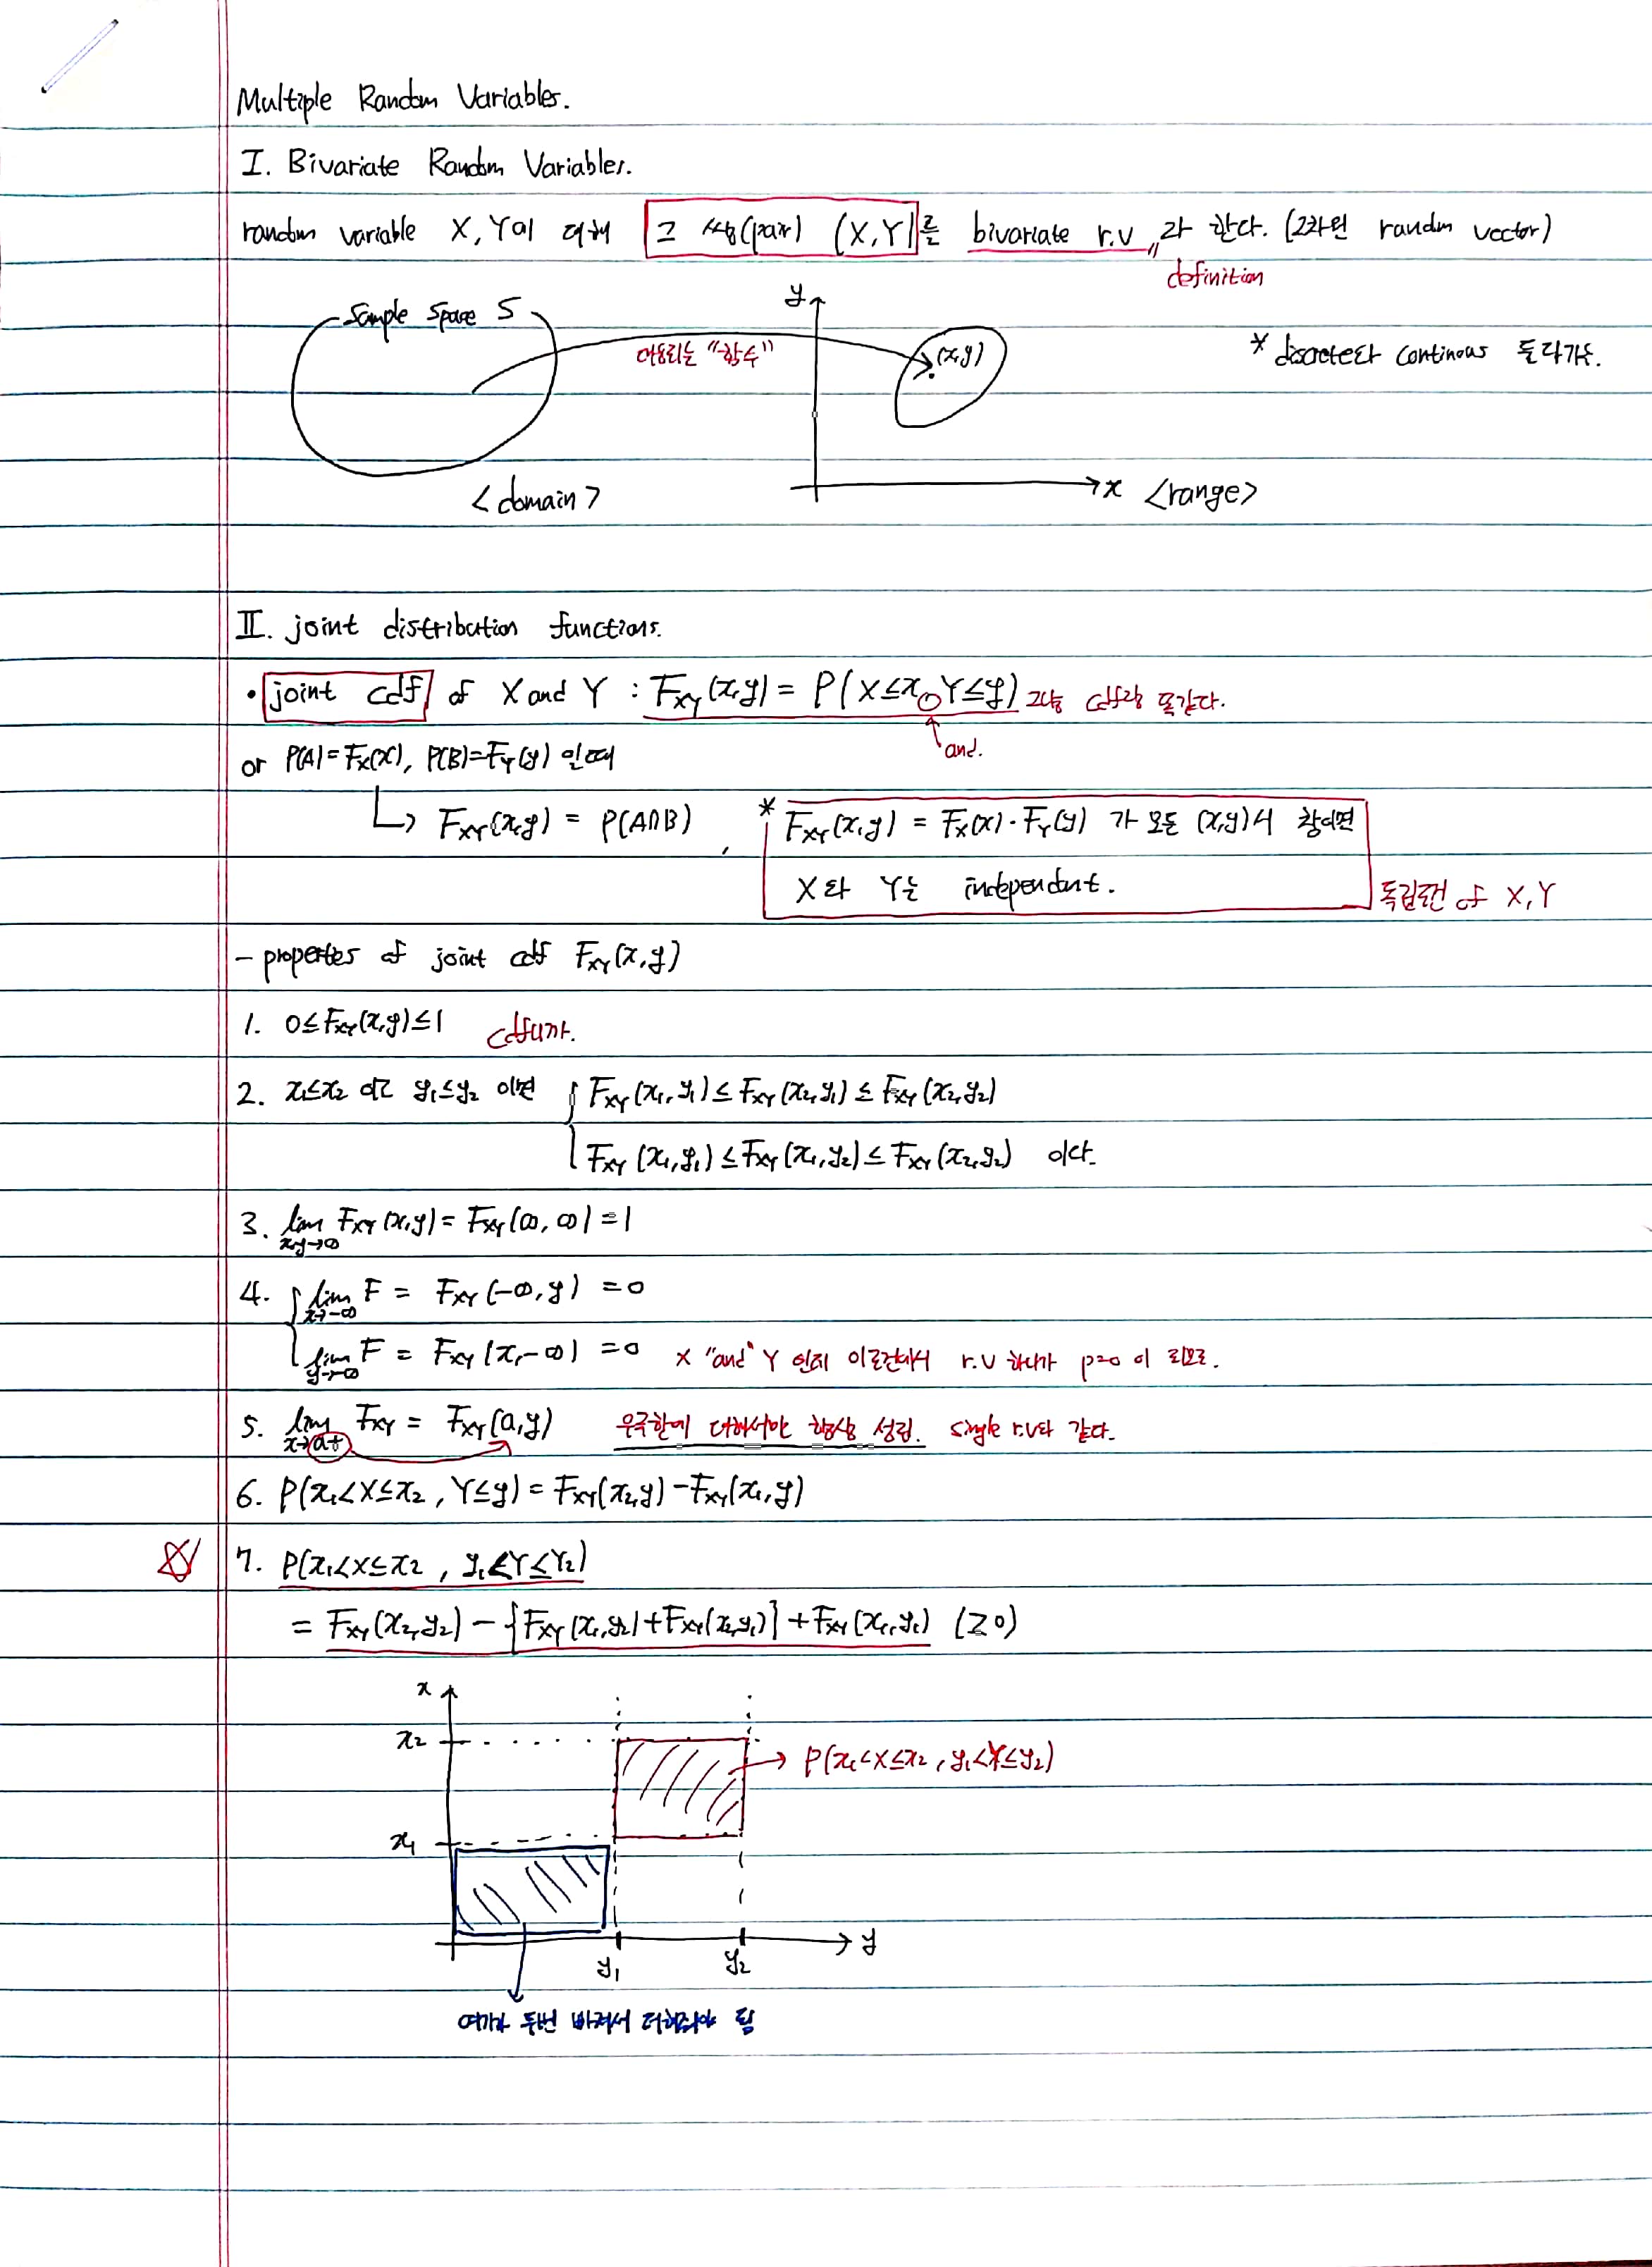 Multiple Random Variables.
I. Bivariate Random Variables.
random variable X, Y에 대해 그 쌍(pair) (X,Y)를 bivariate r.v 라 한다. (2차원 random vector)
definition
Sample Space S
y
대응되는 "함수"
(x,y)
* discrete와 continous 둘다가능.
<domain>
x <range>
II. joint distribution functions.
• joint cdf of X and Y : F_XY(x,y) = P(X≤x, Y≤y) 그냥 cdf랑 똑같다.
and.
or P(A)=F_X(x), P(B)=F_Y(y) 일때
↳ F_XY(x,y) = P(A∩B) , * F_XY(x,y) = F_X(x)·F_Y(y) 가 모든 (x,y)서 참이면
X와 Y는 independent. 독립조건 of X, Y
- properties of joint cdf F_XY(x,y)
1. 0≤F_XY(x,y)≤1 cdf니까.
2. x₁≤x₂ 이고 y₁≤y₂ 이면 { F_XY(x₁,y₁)≤F_XY(x₂,y₁)≤F_XY(x₂,y₂)
F_XY(x₁,y₁)≤F_XY(x₁,y₂)≤F_XY(x₂,y₂) 이다.
3. lim x,y→∞ F_XY(x,y)=F_XY(∞,∞)=1
4. { lim x→-∞ F = F_XY(-∞,y) =0
lim y→-∞ F = F_XY(x,-∞) =0 X "and" Y 인지 r.v 하나가 p=0 이 되므로.
5. lim x→a+ F_XY = F_XY(a,y) 우극한에 대해서만 항상 성립. single r.v와 같다.
6. P(x₁<X≤x₂, Y≤y)=F_XY(x₂,y)-F_XY(x₁,y)
7. P(x₁<X≤x₂, y₁<Y≤Y₂)
= F_XY(x₂,y₂)-{F_XY(x₁,y₂)+F_XY(x₂,y₁)}+F_XY(x₁,y₁) (≥0)
x
x₂
P(x₁<X≤x₂, y₁<Y≤y₂)
x₁
y₁ y₂ y
여기가 두번 빠져서 더해줘야 됨